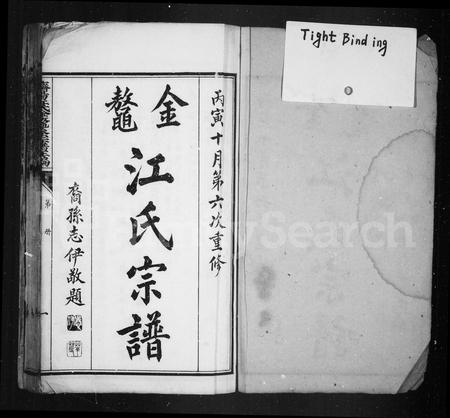 Tight Binding
丙寅十月第六次重修
金鼇
江氏宗譜
裔孫志伊敬題
第 册